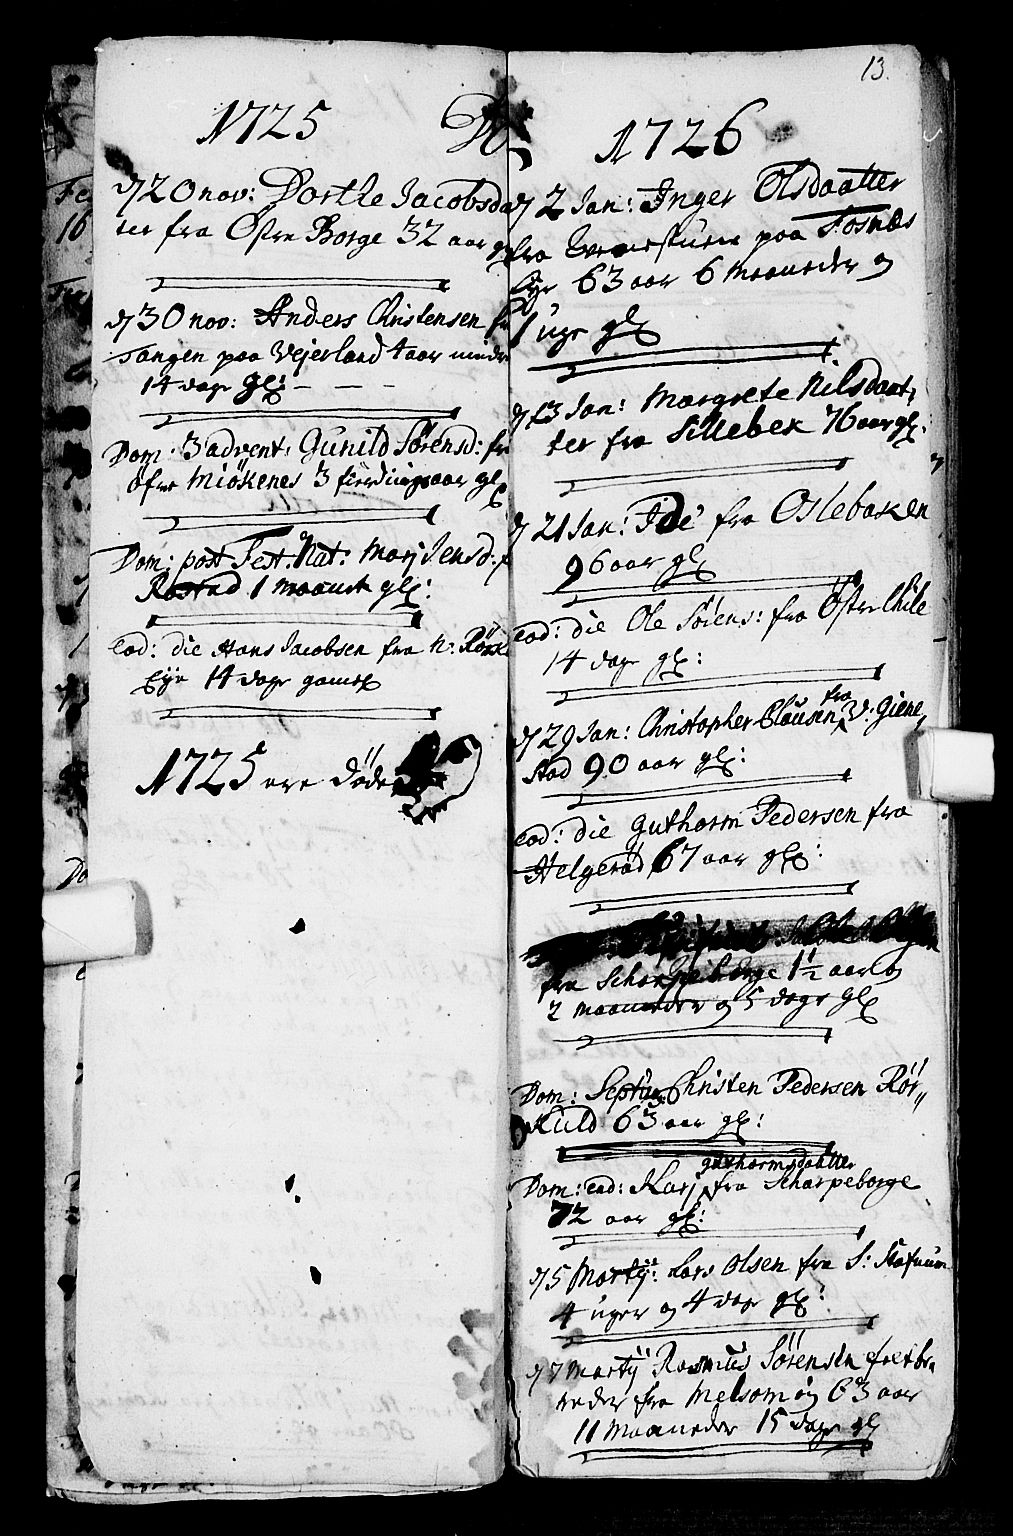 1725
d 20 nov: Dorthe Jacobsda
ter fra Østre Borge 32 aar gl
d 30 nov: Anders Christensen fr
Tangen paa Vejerland 4 aar mindr
14 dage gl:
Dom: 3 advent: Gunild Sørensd: fr
øfre Miøkenes 3 fierding aar gl
Dom: post Fest: Nat: Marj Jensd: f
Rostad 1 maanet gl:
Eod: die Hans Jacobsen fra N: Røkk
Eye 14 dage gamel
1725 ere døde
13.
1726
d 2 Jan: Inger Olsdaatter
fra paa Fosnæs
Eye 63 aar 6 maaneder og
1 uge gl
d 13 Jan: Margrete Nilsdaat,
ter fra Sillebek 76 aar gl:
d 21 Jan: Ide fra Oslebaken
96 aar gl
Eod: die Ole Sørens: fra Østre Qvile
14 dage gl:
d 29 Jan: Christopher Clausen fra V: Giene,
stad 90 aar gl:
Eod: die Guthorm Pedersen fra
Helgerød 67 aar gl:
fra Scharpeborge 1½ aar og
2 maaneder og 5 dage gl
Dom: Septuag Christen Pedersen Rør,,
Kuld 63 aar gl:
Dom: eod: Karj guthormsdaatter fra Scharpeborge
72 aar gl:
d 5 Martij: Lars Olsen fra S: Stafnum
4 uger og 4 dage gl:
d 7 Martij Rasmus Sørensen
fra Melsom og 63 aar
11 Maaneder 15 dage gl